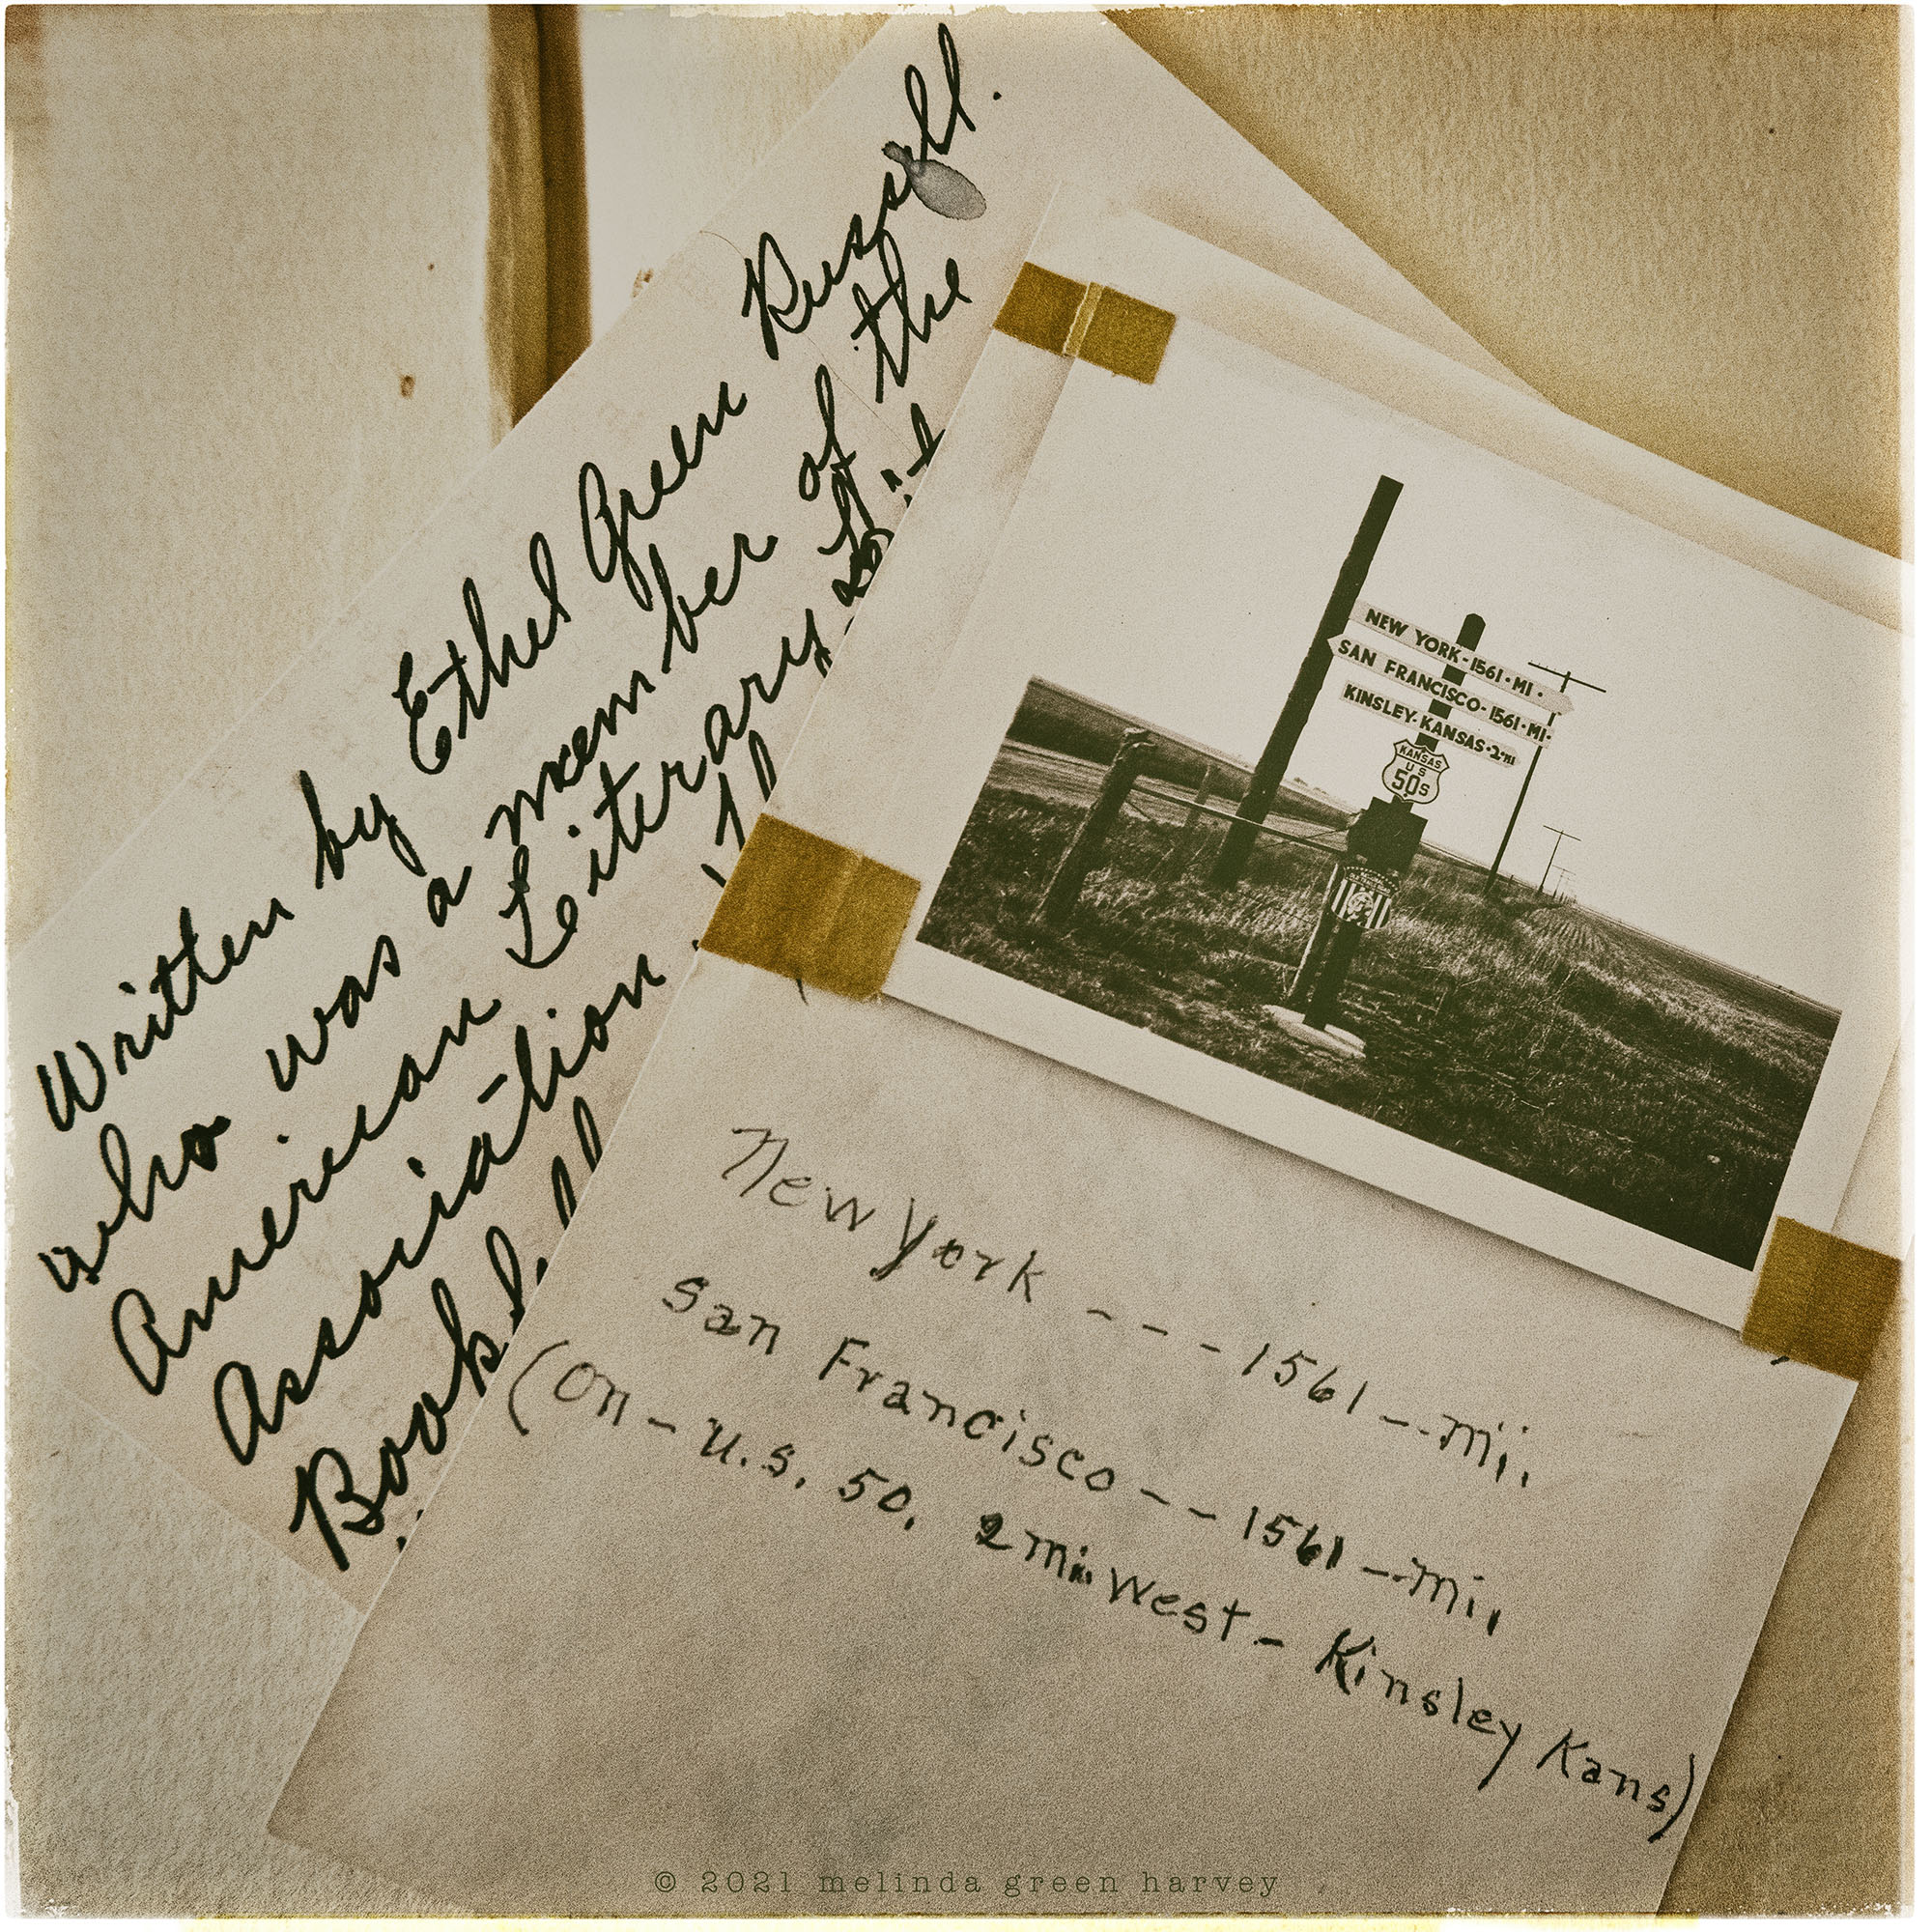 Written by Ethel Green Russell.
who was a member of the
American Literary
Association
Book
NEW YORK-1561-MI-
SAN FRANCISCO-1561-MI-
KINSLEY-KANSAS-2-MI
KANSAS
US
50S
New York - - - 1561 -- mi.
San Francisco - - 1561 -- mi.
(On - U.S. 50. 2 mi. West - Kinsley Kans)
© 2021 melinda green harvey